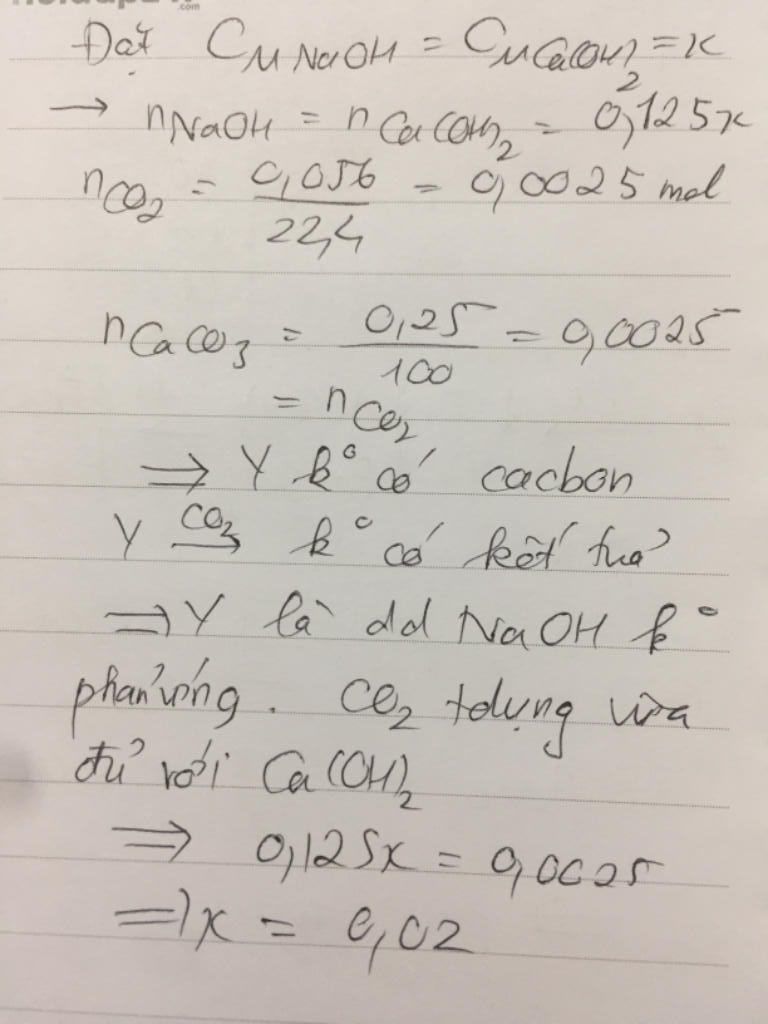 .com
Đặt C_M NaOH = C_M Ca(OH)_2 = x
→ n_NaOH = n_Ca(OH)_2 = 0,125x
n_CO2 = 0,056/22,4 = 0,0025 mol
n_CaCO3 = 0,25/100 = 0,0025
= n_CO2
⇒ Y k° có cacbon
Y →(CO2) k° có kết tủa
⇒ Y là dd NaOH k°
phản ứng. CO2 tdụng vừa
đủ với Ca(OH)2
⇒ 0,125x = 0,0025
⇒ x = 0,02